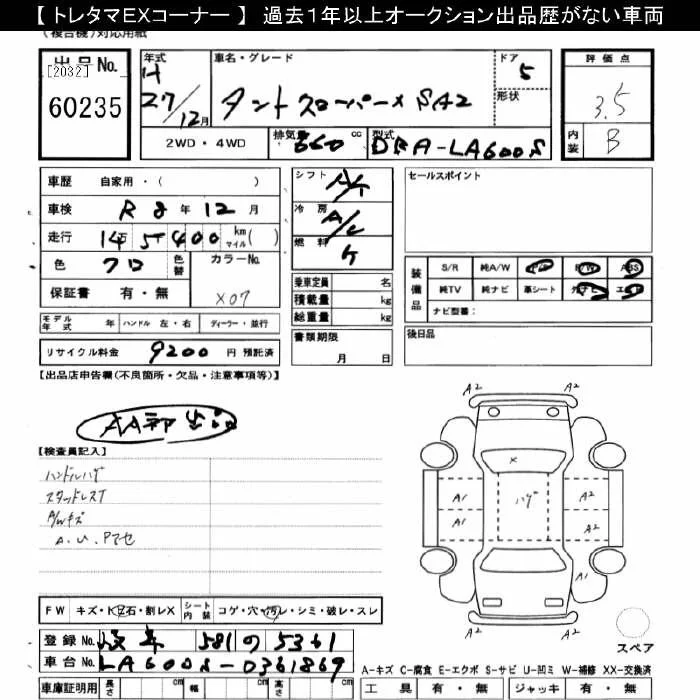 【 トレタマEXコーナー 】 過去1年以上オークション出品歴がない車両
(複合機)対応用紙
出品No.
[2032]
60235
年式
H
27/12月
車名・グレード
タント スローパー X SA2
ドア
5
形状
評価点
3.5
内装
B
2WD・4WD
排気量
660
cc
型式
DBA-LA600S
車歴 自家用・( )
車検 R 8年 12月
走行 14万 5千 400 km マイル ( )
色 クロ 色替
カラーNo.
X07
保証書 有・無
シフト A/T
冷房 A/C
燃料
セールスポイント
乗車定員 名
積載量 kg
総重量 kg
装備品
S/R 純A/W P/S P/W ABS
純TV 純ナビ 革シート エアB
ナビ型番:
モデル年式 年 ハンドル 左・右 ディーラー・並行
書類期限
月 日
後日品
リサイクル料金 9200 円 預託済
【出品店申告欄(不良箇所・欠品・注意事項等)】
【検査員記入】
ハンドルハゲ
スタッドレスT
A/Wキズ
A.U.Pアセ
A2 A2
×
ハゲ
A1 A2
A1 A2
A1
A2 A2
スペア
FW キズ・トビ石・割レX シート内装 コゲ・穴・汚レ・シミ・破レ・スレ
登録No. 岐阜 581 の 5361
車台No. LA600S-0361869
車庫証明用 長さ cm 幅 cm 高さ cm
A-キズ C-腐食 E-エクボ S-サビ U-凹ミ W-補修 XX-交換済
工具 有・無 ジャッキ 有・無